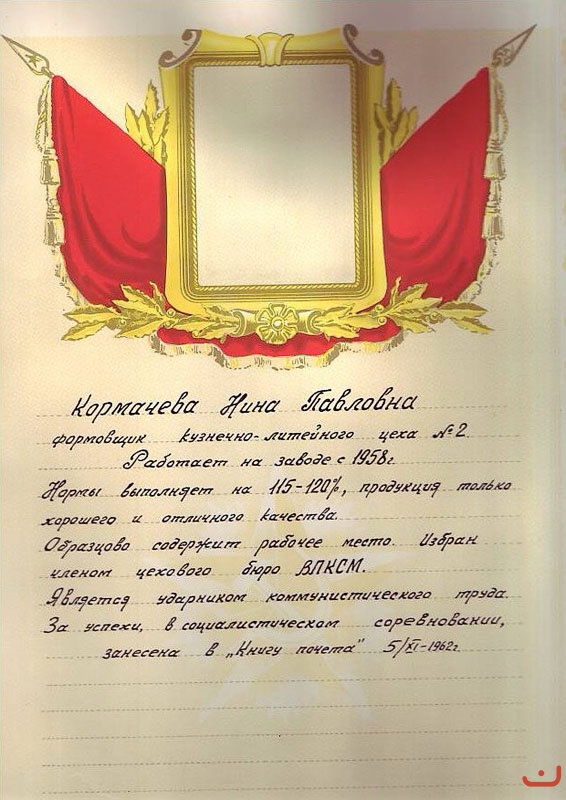 Кормачева Нина Павловна
формовщик кузнечно-литейного цеха №2
Работает на заводе с 1958г.
Нормы выполняет на 115-120%, продукция только
хорошего и отличного качества.
Образцово содержит рабочее место. Избран
членом цехового бюро ВЛКСМ.
Является ударником коммунистического труда.
За успехи, в социалистическом соревновании,
занесена в „Книгу почета" 5/XI-1962г